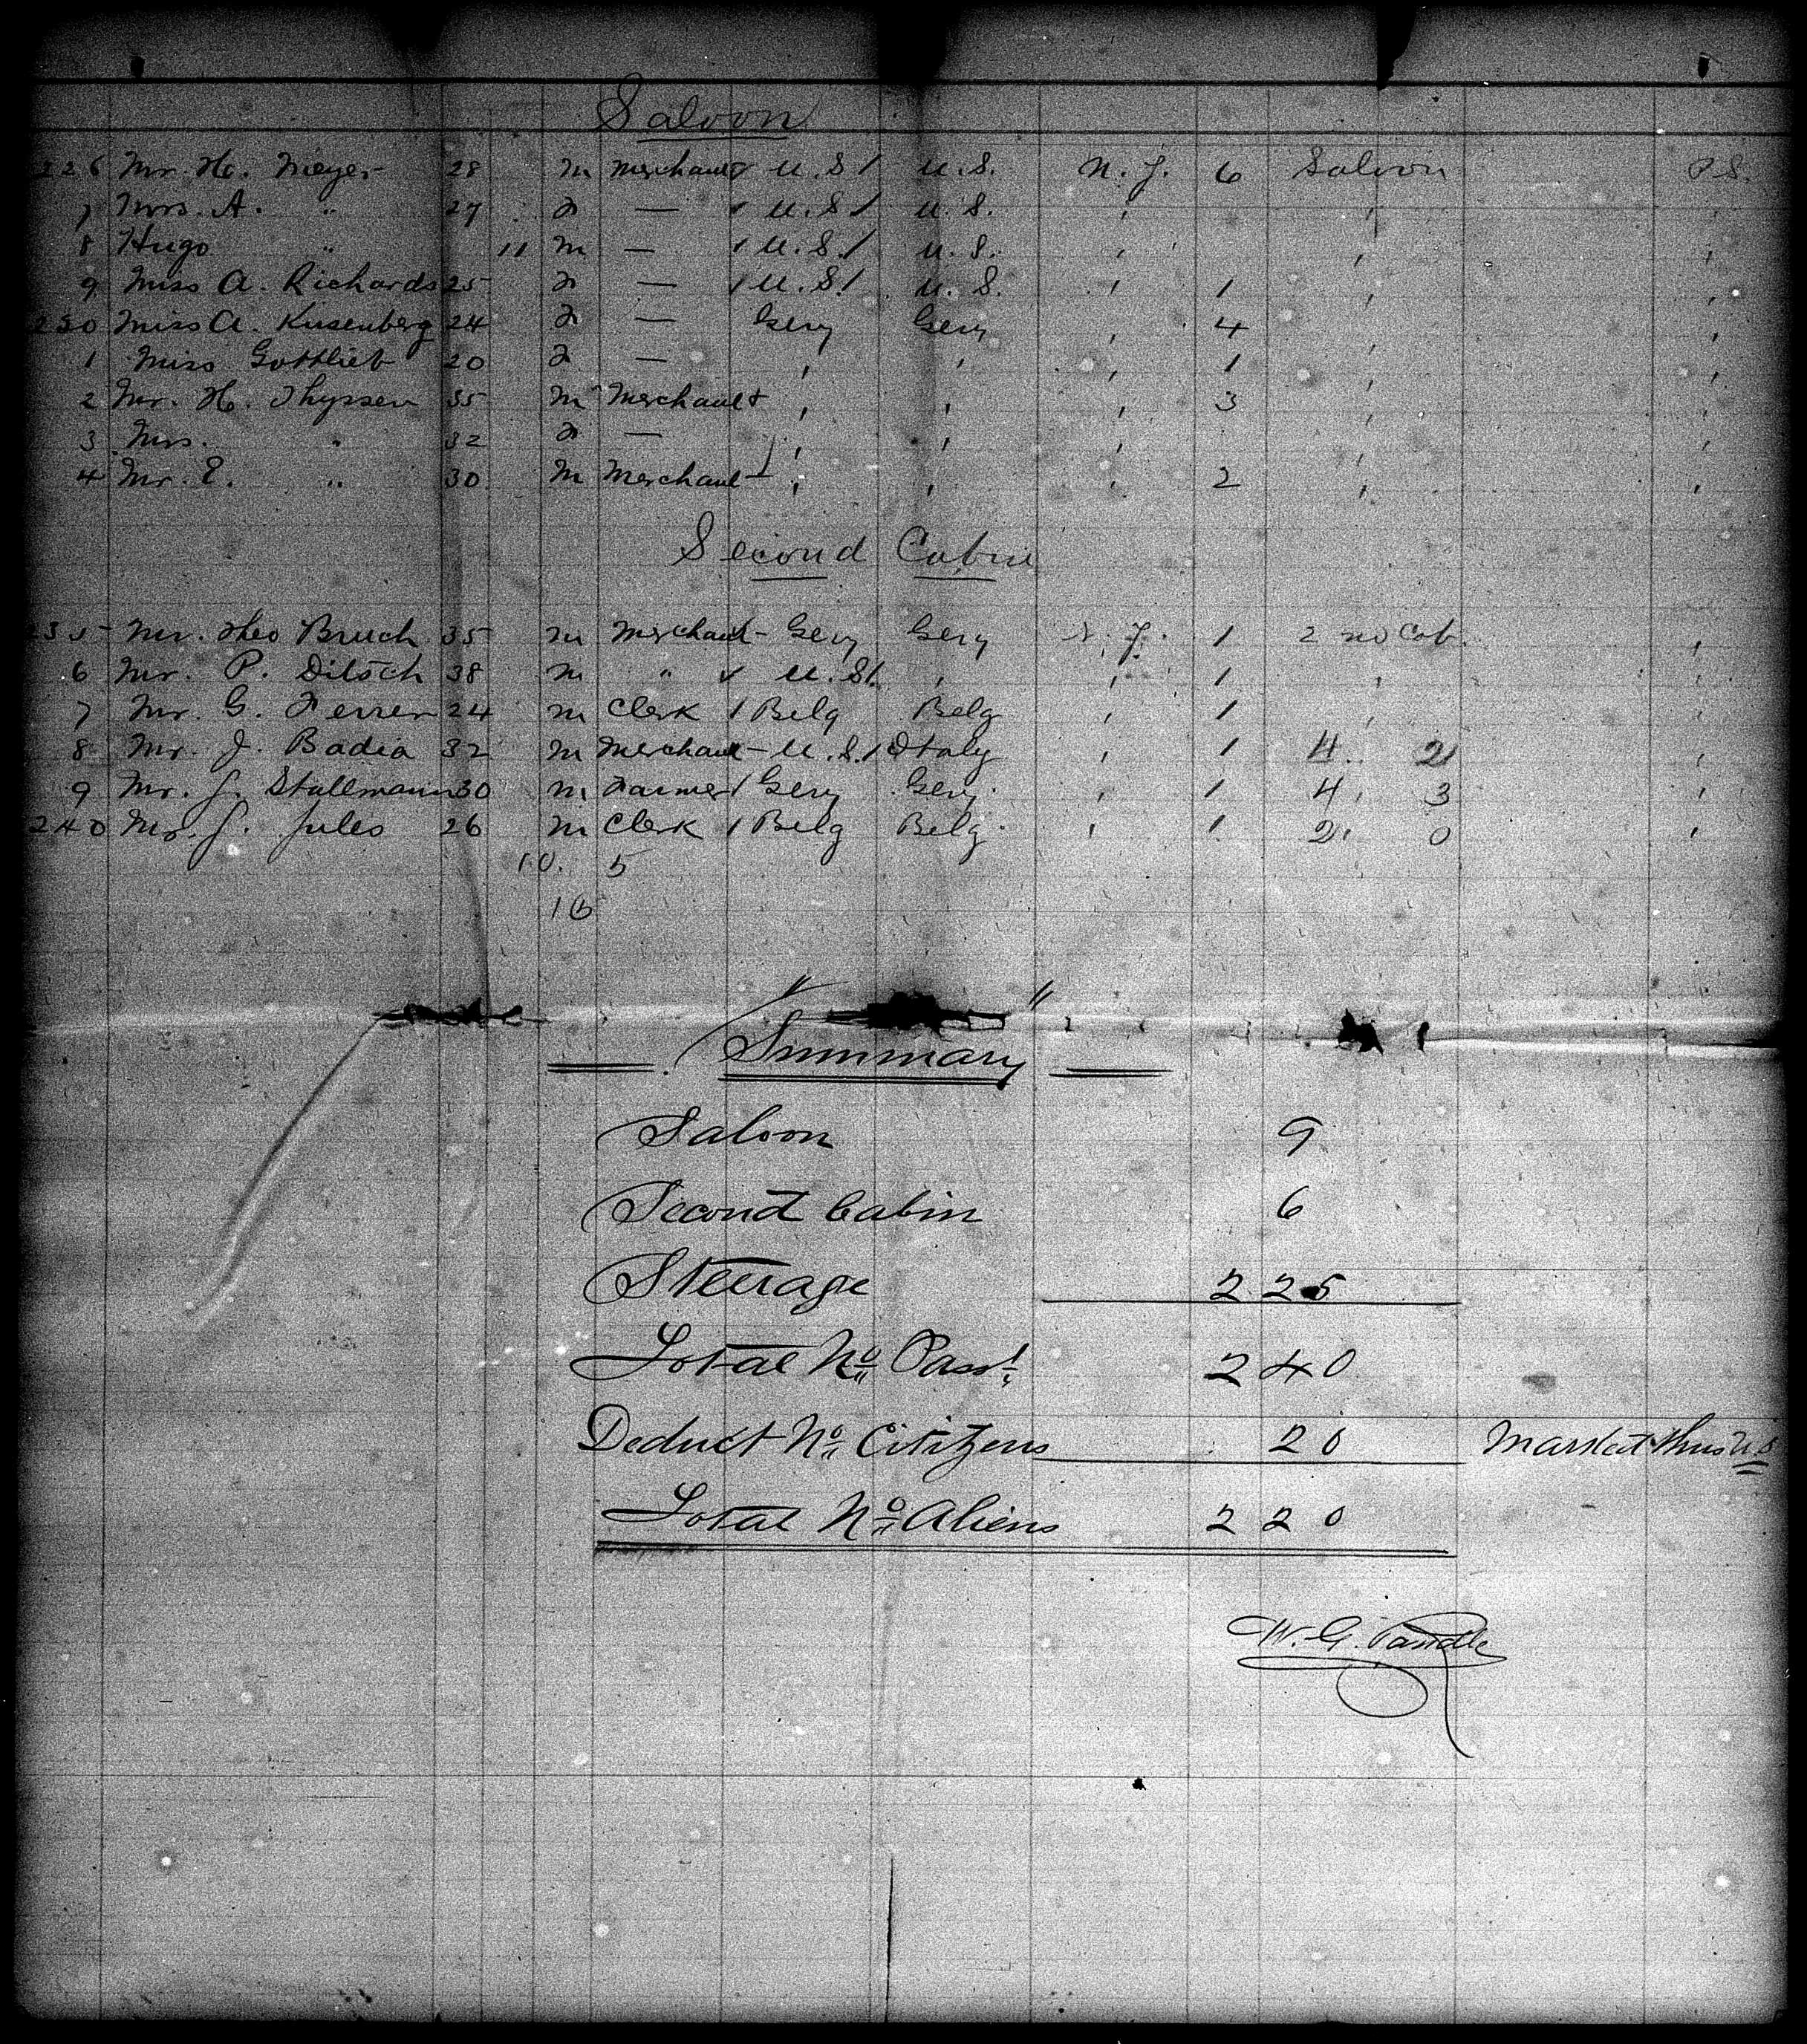 Saloon
226 Mr. H. Meyer 28 m Merchant U.S. U.S. N.Y. 6 Saloon P.S.
7 Mrs. A. " 27 f — U.S. U.S. ' ' '
8 Hugo " 11 m — U.S. U.S. ' ' '
9 Miss A. Richards 25 f — U.S. U.S. ' 1 ' '
230 Miss A. Kusenberg 24 f — Gery Gery ' 4 ' '
1 Miss Gottlieb 20 f — ' ' ' 1 ' '
2 Mr. H. Thyssen 35 m Merchant ' ' ' 3 ' '
3 Mrs. " 32 f — ' ' ' ' '
4 Mr. E. " 30 m Merchant ' ' ' 2 ' '
Second Cabin
235 Mr. Theo Bruch 35 m Merchant Gery Gery N.Y. 1 2nd Cab. '
6 Mr. P. Ditsch 38 m " U.S. ' ' 1 ' '
7 Mr. G. Ferrer 24 m Clerk Belg Belg ' 1 ' '
8 Mr. J. Badia 32 m Merchant U.S. Italy ' 1 4 2 '
9 Mr. J. Stallmann 30 m Farmer Gery Gery ' 1 4 3 '
240 Mr. J. Jules 26 m Clerk Belg Belg ' 1 2 0 '
10. 5
16
" Summary "
Saloon 9
Second Cabin 6
Steerage 225
Total No. Passt. 240
Deduct No. Citizens 20 Marked thus U.S
Total No. Aliens 220
W. G. Randle